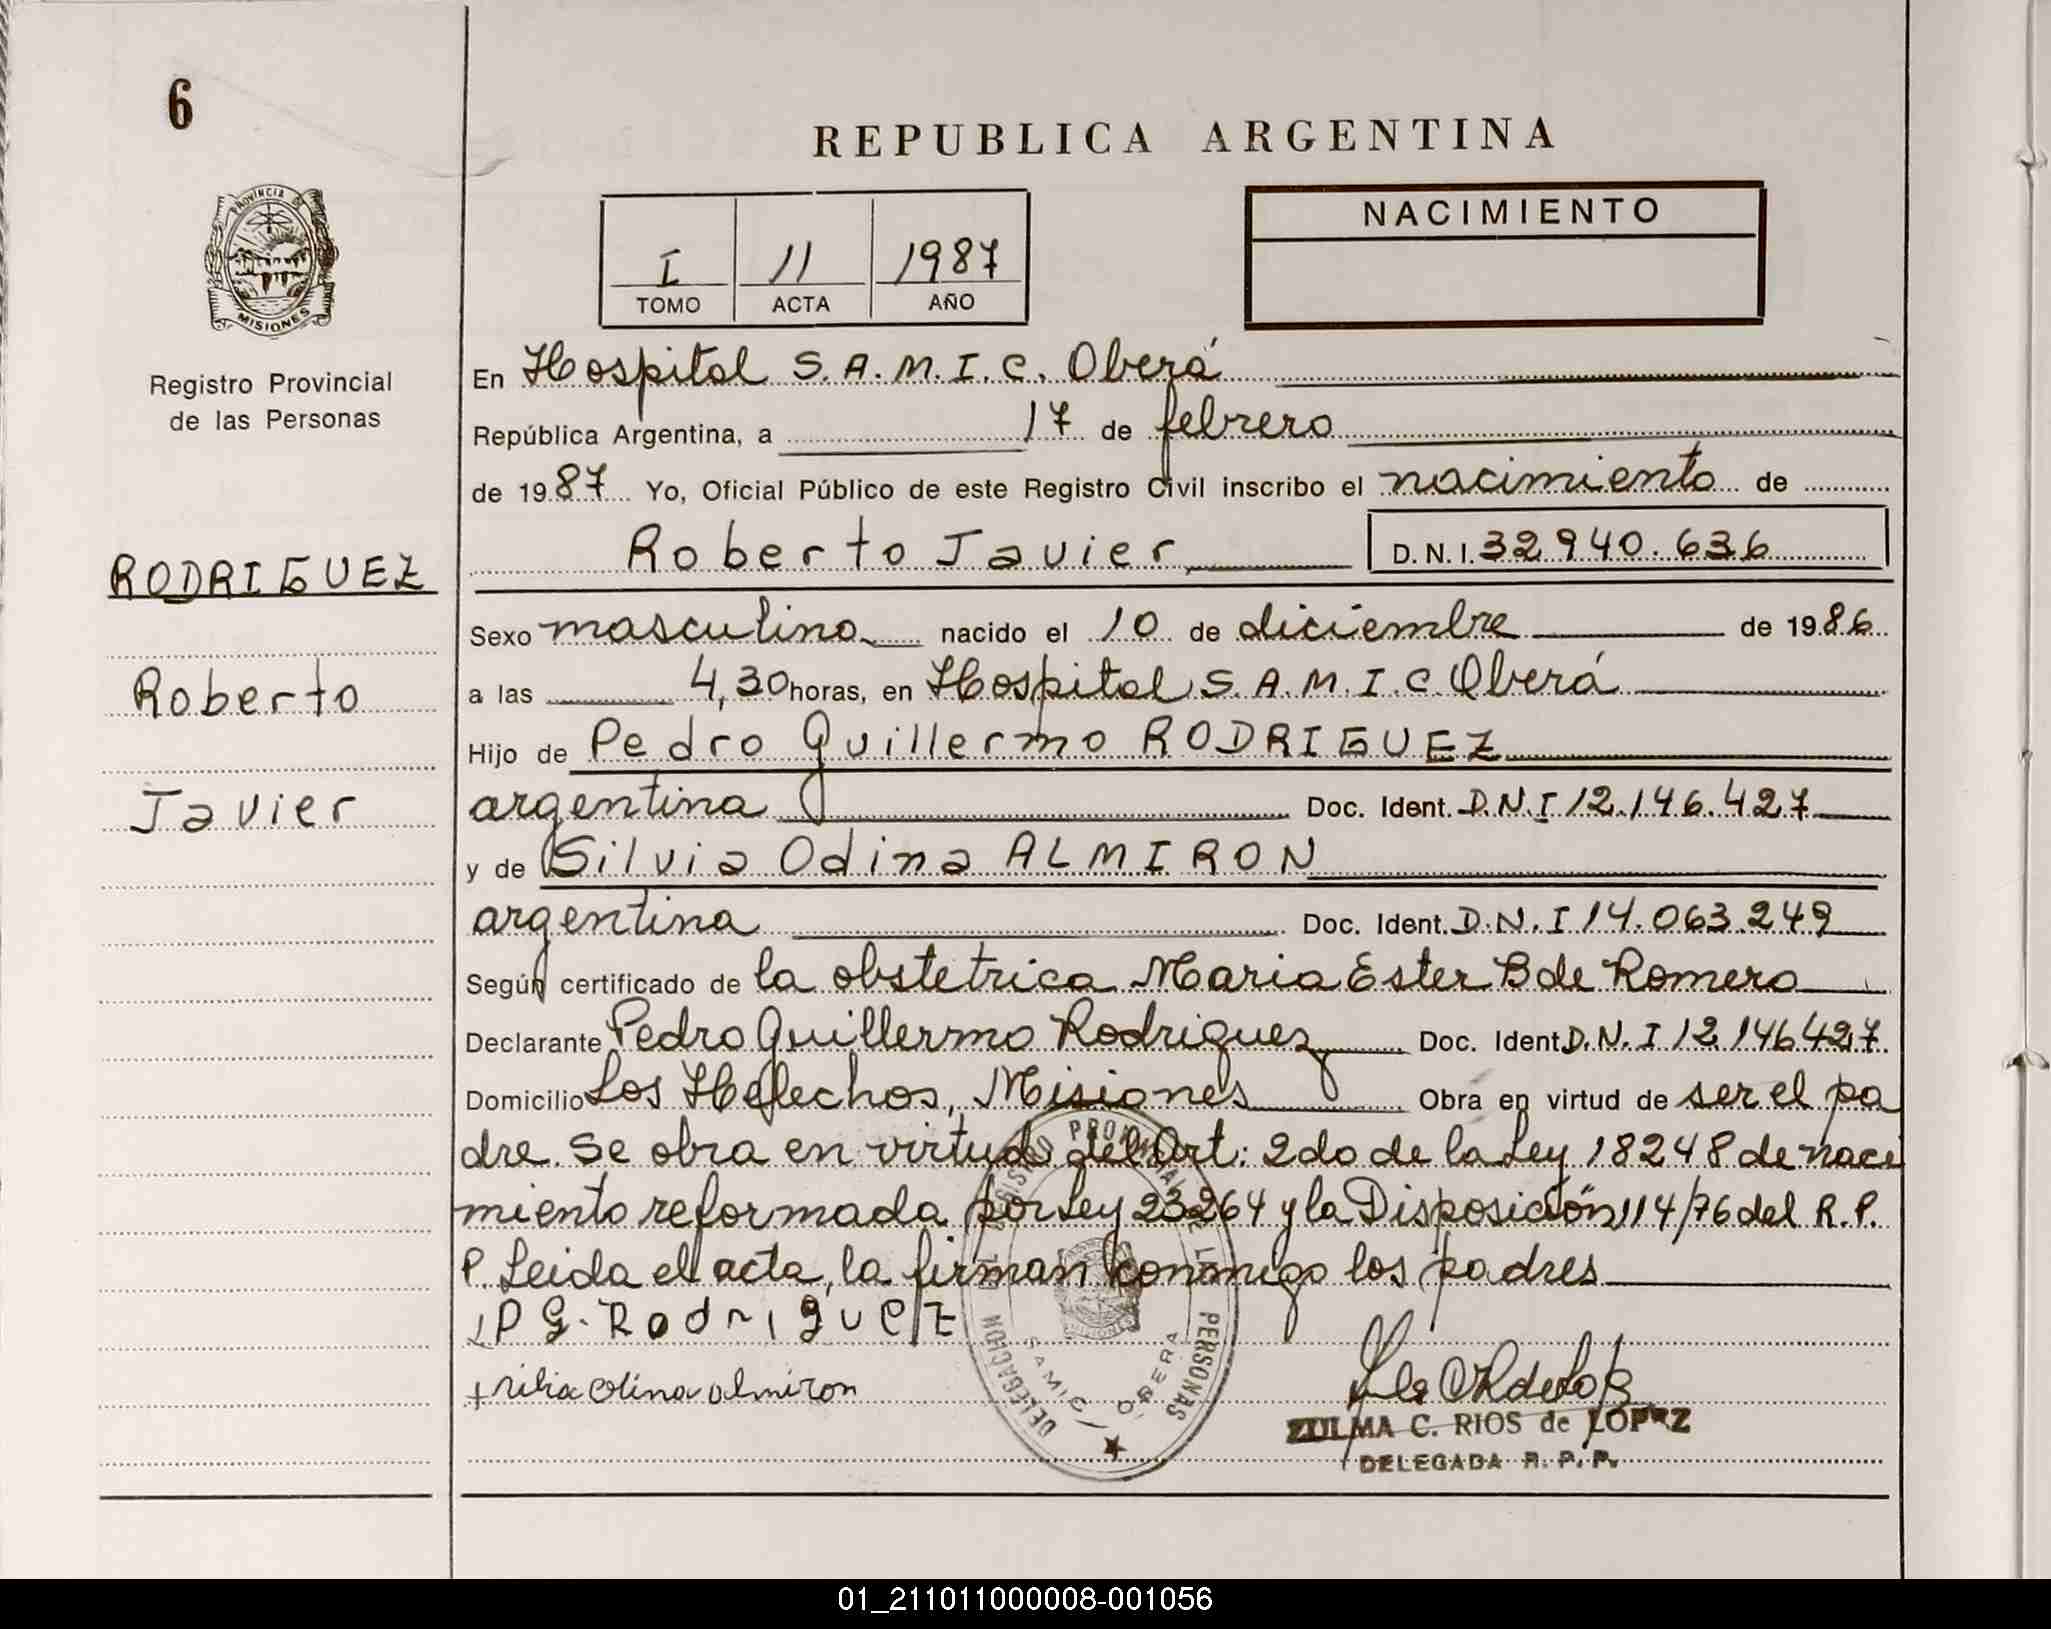 6
REPUBLICA ARGENTINA
NACIMIENTO
I 11 1987
TOMO ACTA AÑO
PROVINCIA DE
MISIONES
Registro Provincial
de las Personas
RODRIGUEZ
Roberto
Javier
En Hospital S.A.M.I.C. Oberá
República Argentina, a 17 de febrero
de 1987 Yo, Oficial Público de este Registro Civil inscribo el nacimiento de
Roberto Javier D.N.I. 32.940.636
Sexo masculino nacido el 10 de diciembre de 1986
a las 4,30 horas, en Hospital S.A.M.I.C. Oberá
Hijo de Pedro Guillermo RODRIGUEZ
argentina Doc. Ident. D.N.I 12.146.427
y de Silvia Odina ALMIRON
argentina Doc. Ident. D.N.I 14.063.249
Según certificado de la obstetrica Maria Ester B de Romero
Declarante Pedro Guillermo Rodriguez Doc. Ident. D.N.I 12.146.427
Domicilio Los Helechos, Misiones Obra en virtud de ser el pa
dre. Se obra en virtud del Art: 2do de la Ley 18248 de naci
miento reformada por Ley 23264 y la Disposición 114/76 del R.P.
P. Leida el acta, la firman conmigo los padres
P G. Rodriguez
DELEGACION DEL REGISTRO PROVINCIAL DE LAS PERSONAS
SAMIC OBERA
ZULMA C. RIOS de LOPEZ
DELEGADA R. P. P.
01_211011000008-001056